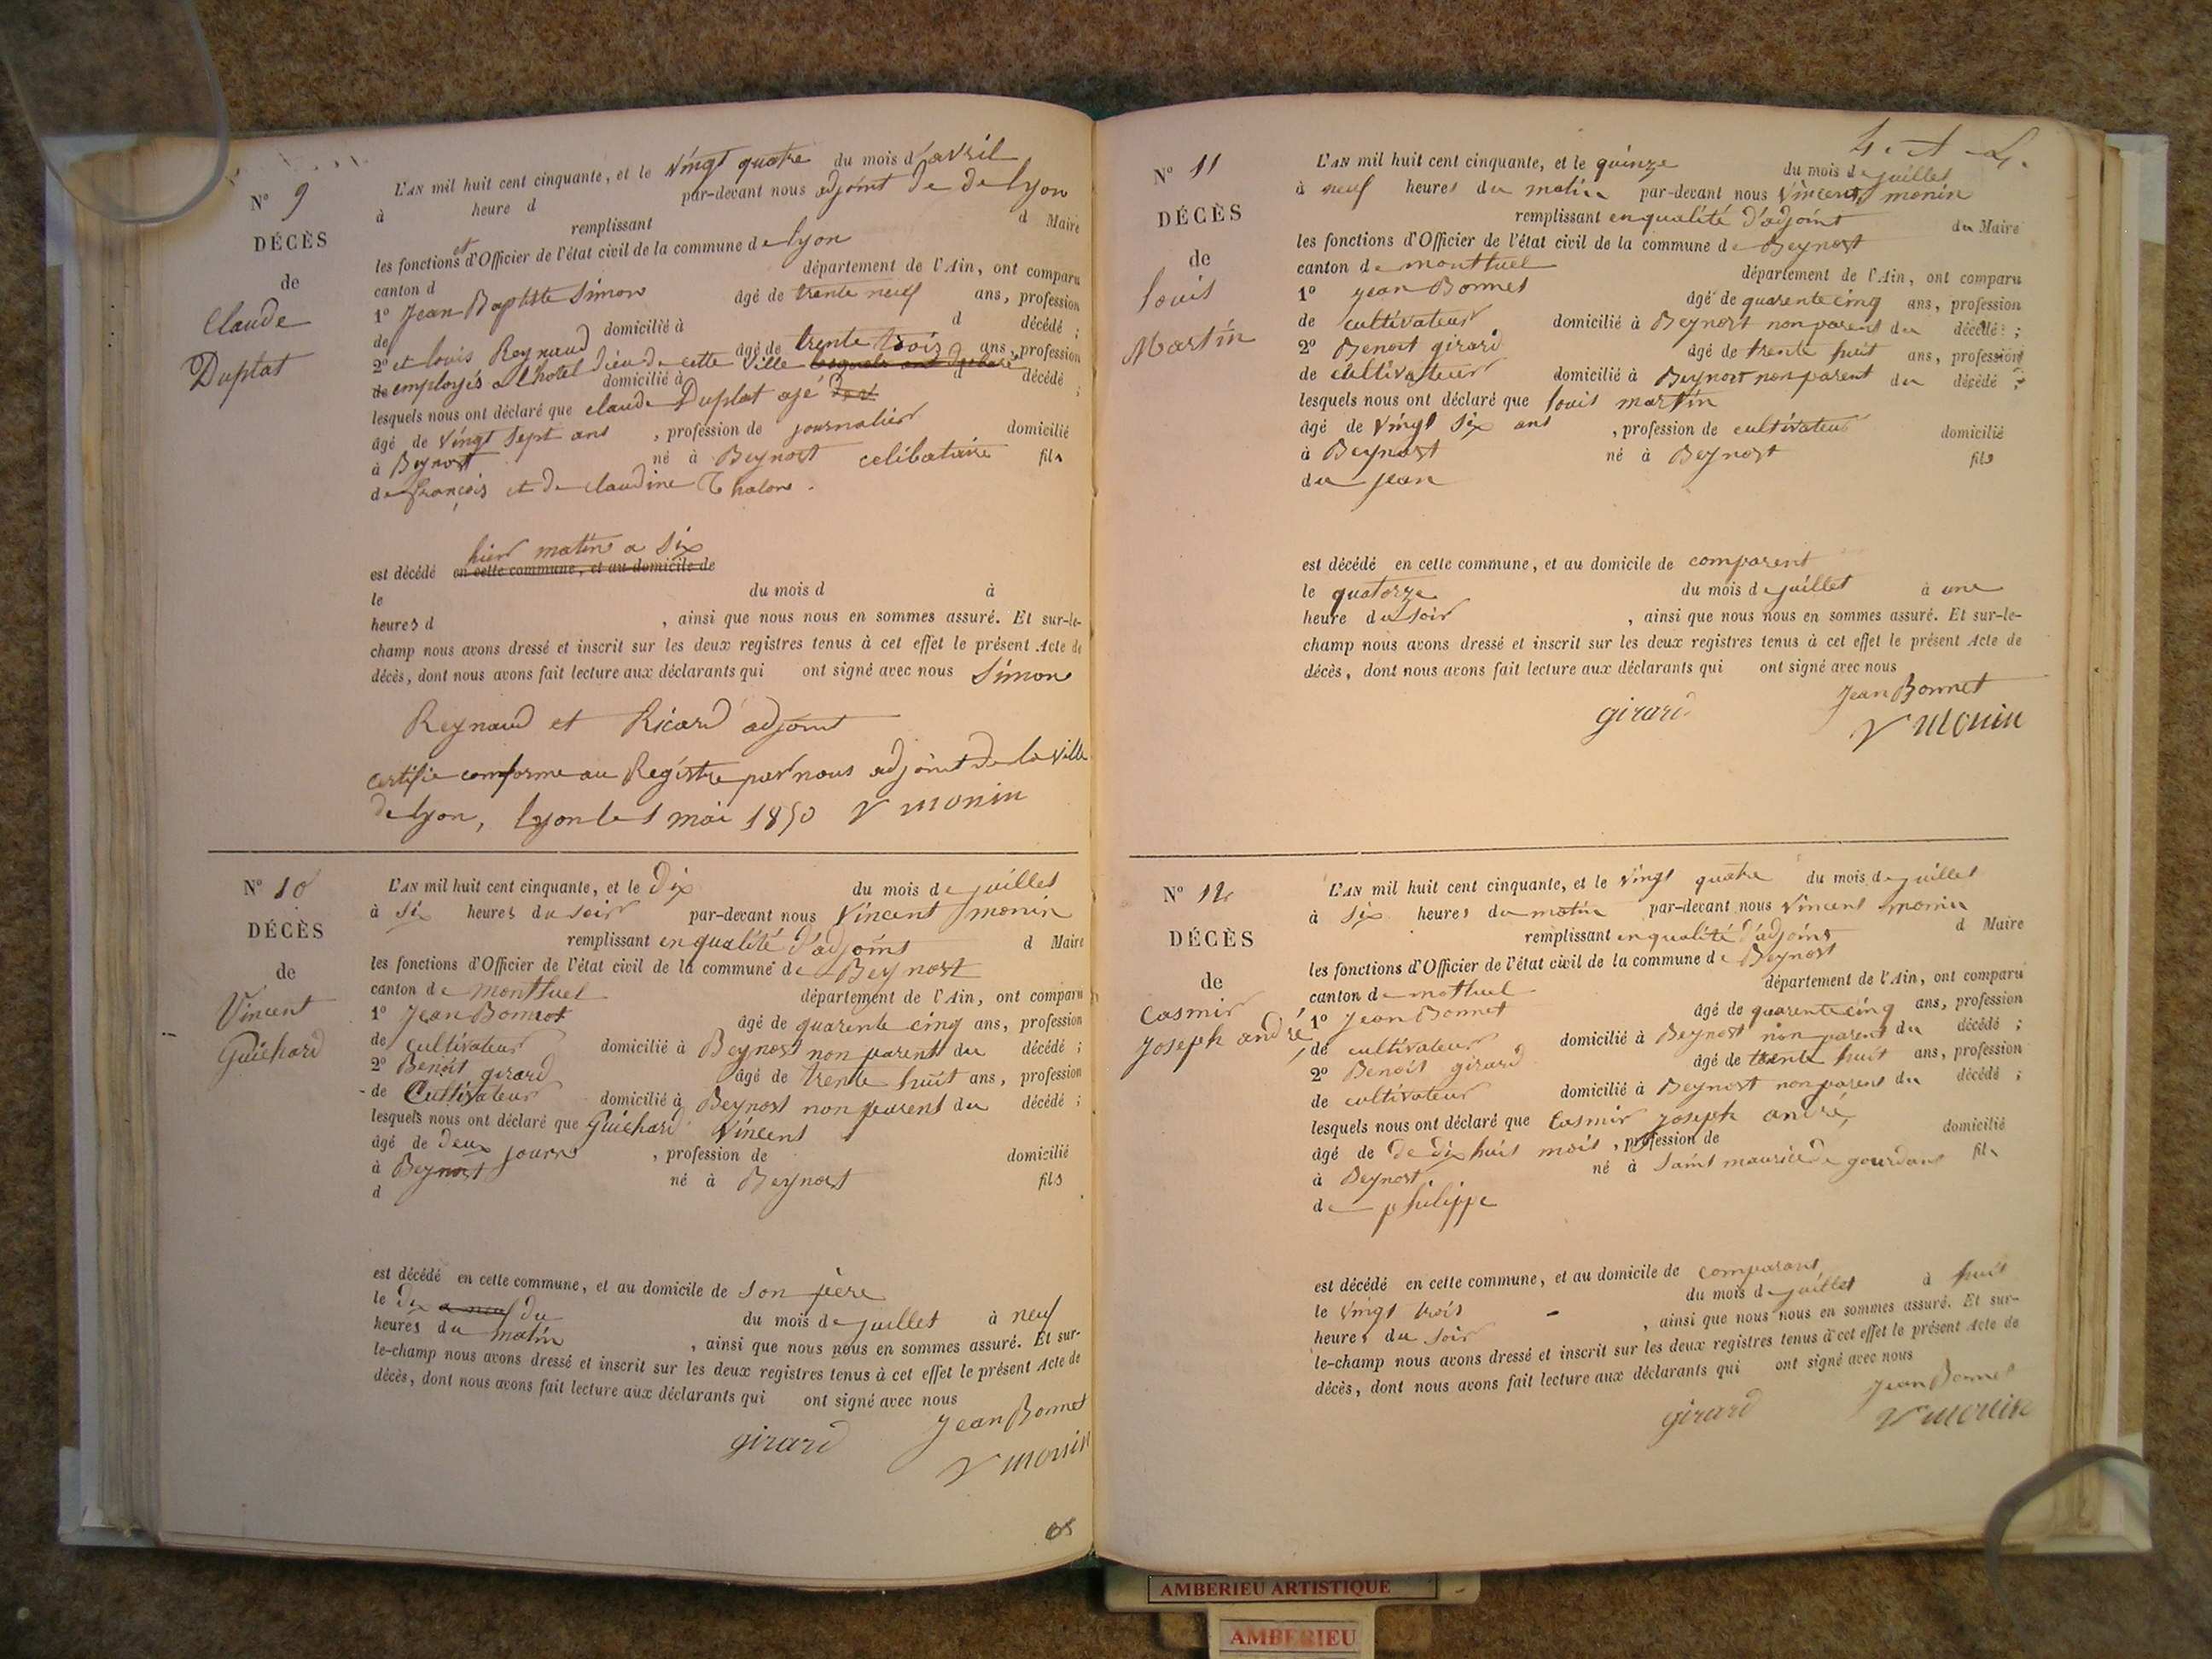 N° 9
DÉCÈS
de
Claude
Duplat
L'AN mil huit cent cinquante, et le vingt quatre du mois d'avril
à heure d par-devant nous adjoint de de lyon
remplissant d Maire
les fonctions et d'Officier de l'état civil de la commune de lyon
canton d département de l'Ain, ont comparu
1° Jean Baptiste Simon âgé de trente neuf ans, profession
de domicilié à d décédé ;
2° et louis Reynaud âgé de trente trois ans, profession
de employés a l'hotel dieu de cette ville lesquels ont declaré domicilié à d décédé ;
lesquels nous ont déclaré que claude Duplat agé
âgé de vingt sept ans , profession de journalier domicilié
à Beynost né à Beynost celibataire fils
de françois et de claudine Thalon .
hier matin a six
est décédé en cette commune, et au domicile de
le du mois d à
heures d , ainsi que nous nous en sommes assuré. Et sur-le-
champ nous avons dressé et inscrit sur les deux registres tenus à cet effet le présent Acte de
décès, dont nous avons fait lecture aux déclarants qui ont signé avec nous Simon
Reynaud et Ricard adjoint
certifié conforme au Registre par nous adjoint de la ville
de lyon, lyon le 1 mai 1850 V monin
N° 10
DÉCÈS
de
Vincent
Guichard
L'AN mil huit cent cinquante, et le dix du mois de juillet
à six heures du soir par-devant nous Vincent monin
remplissant en qualité d'adjoint d Maire
les fonctions d'Officier de l'état civil de la commune de Beynost
canton de montluel département de l'Ain, ont comparu
1° Jean Bonnet âgé de quarente cinq ans, profession
de cultivateur domicilié à Beynost non parent du décédé ;
2° Benoit girard âgé de trente huit ans, profession
de Cultivateur domicilié à Beynost non parent du décédé ;
lesquels nous ont déclaré que Guichard Vincent
âgé de deux jours , profession de domicilié
à Beynost né à Beynost fils
d
est décédé en cette commune, et au domicile de son père
le dix a neuf du du mois de juillet à neuf
heures du matin , ainsi que nous nous en sommes assuré. Et sur-
le-champ nous avons dressé et inscrit sur les deux registres tenus à cet effet le présent Acte de
décès, dont nous avons fait lecture aux déclarants qui ont signé avec nous
girard Jean Bonnet
V monin
N° 11
DÉCÈS
de
louis
Martin
L'AN mil huit cent cinquante, et le quinze du mois de juillet
à neuf heures du matin par-devant nous Vincent monin
remplissant en qualité d'adjoint du Maire
les fonctions d'Officier de l'état civil de la commune de Beynost
canton de montluel département de l'Ain, ont comparu
1° jean Bonnet âgé de quarente cinq ans, profession
de cultivateur domicilié à Beynost non parent du décédé ;
2° Benoit girard âgé de trente huit ans, profession
de cultivateur domicilié à Beynost non parent du décédé ;
lesquels nous ont déclaré que louis martin
âgé de vingt six ans , profession de cultivateur domicilié
à Beynost né à Beynost fils
du jean
est décédé en cette commune, et au domicile de comparent
le quatorze du mois de juillet à une
heure du soir , ainsi que nous nous en sommes assuré. Et sur-le-
champ nous avons dressé et inscrit sur les deux registres tenus à cet effet le présent Acte de
décès, dont nous avons fait lecture aux déclarants qui ont signé avec nous
girard Jean Bonnet
V monin
N° 12
DÉCÈS
de
Casmir
Joseph andré
L'AN mil huit cent cinquante, et le vingt quatre du mois de juillet
à six heures du matin par-devant nous vincent monin
remplissant en qualité d'adjoint d Maire
les fonctions d'Officier de l'état civil de la commune de Beynost
canton de motluel département de l'Ain, ont comparu
1° Jean Bonnet âgé de quarente cinq ans, profession
de cultivateur domicilié à Beynost non parent du décédé ;
2° Benoit girard âgé de trente huit ans, profession
de cultivateur domicilié à Beynost non parent du décédé ;
lesquels nous ont déclaré que Casmir joseph andré,
âgé de de dix huit mois , profession de domicilié
à Beynost né à Saint maurice de gourdans fils
de philippe
est décédé en cette commune, et au domicile de comparant
le vingt trois du mois de juillet à huit
heures du soir , ainsi que nous nous en sommes assuré. Et sur-
le-champ nous avons dressé et inscrit sur les deux registres tenus à cet effet le présent Acte de
décès, dont nous avons fait lecture aux déclarants qui ont signé avec nous
girard Jean Bonnet
V monin
AMBERIEU ARTISTIQUE
AMBERIEU